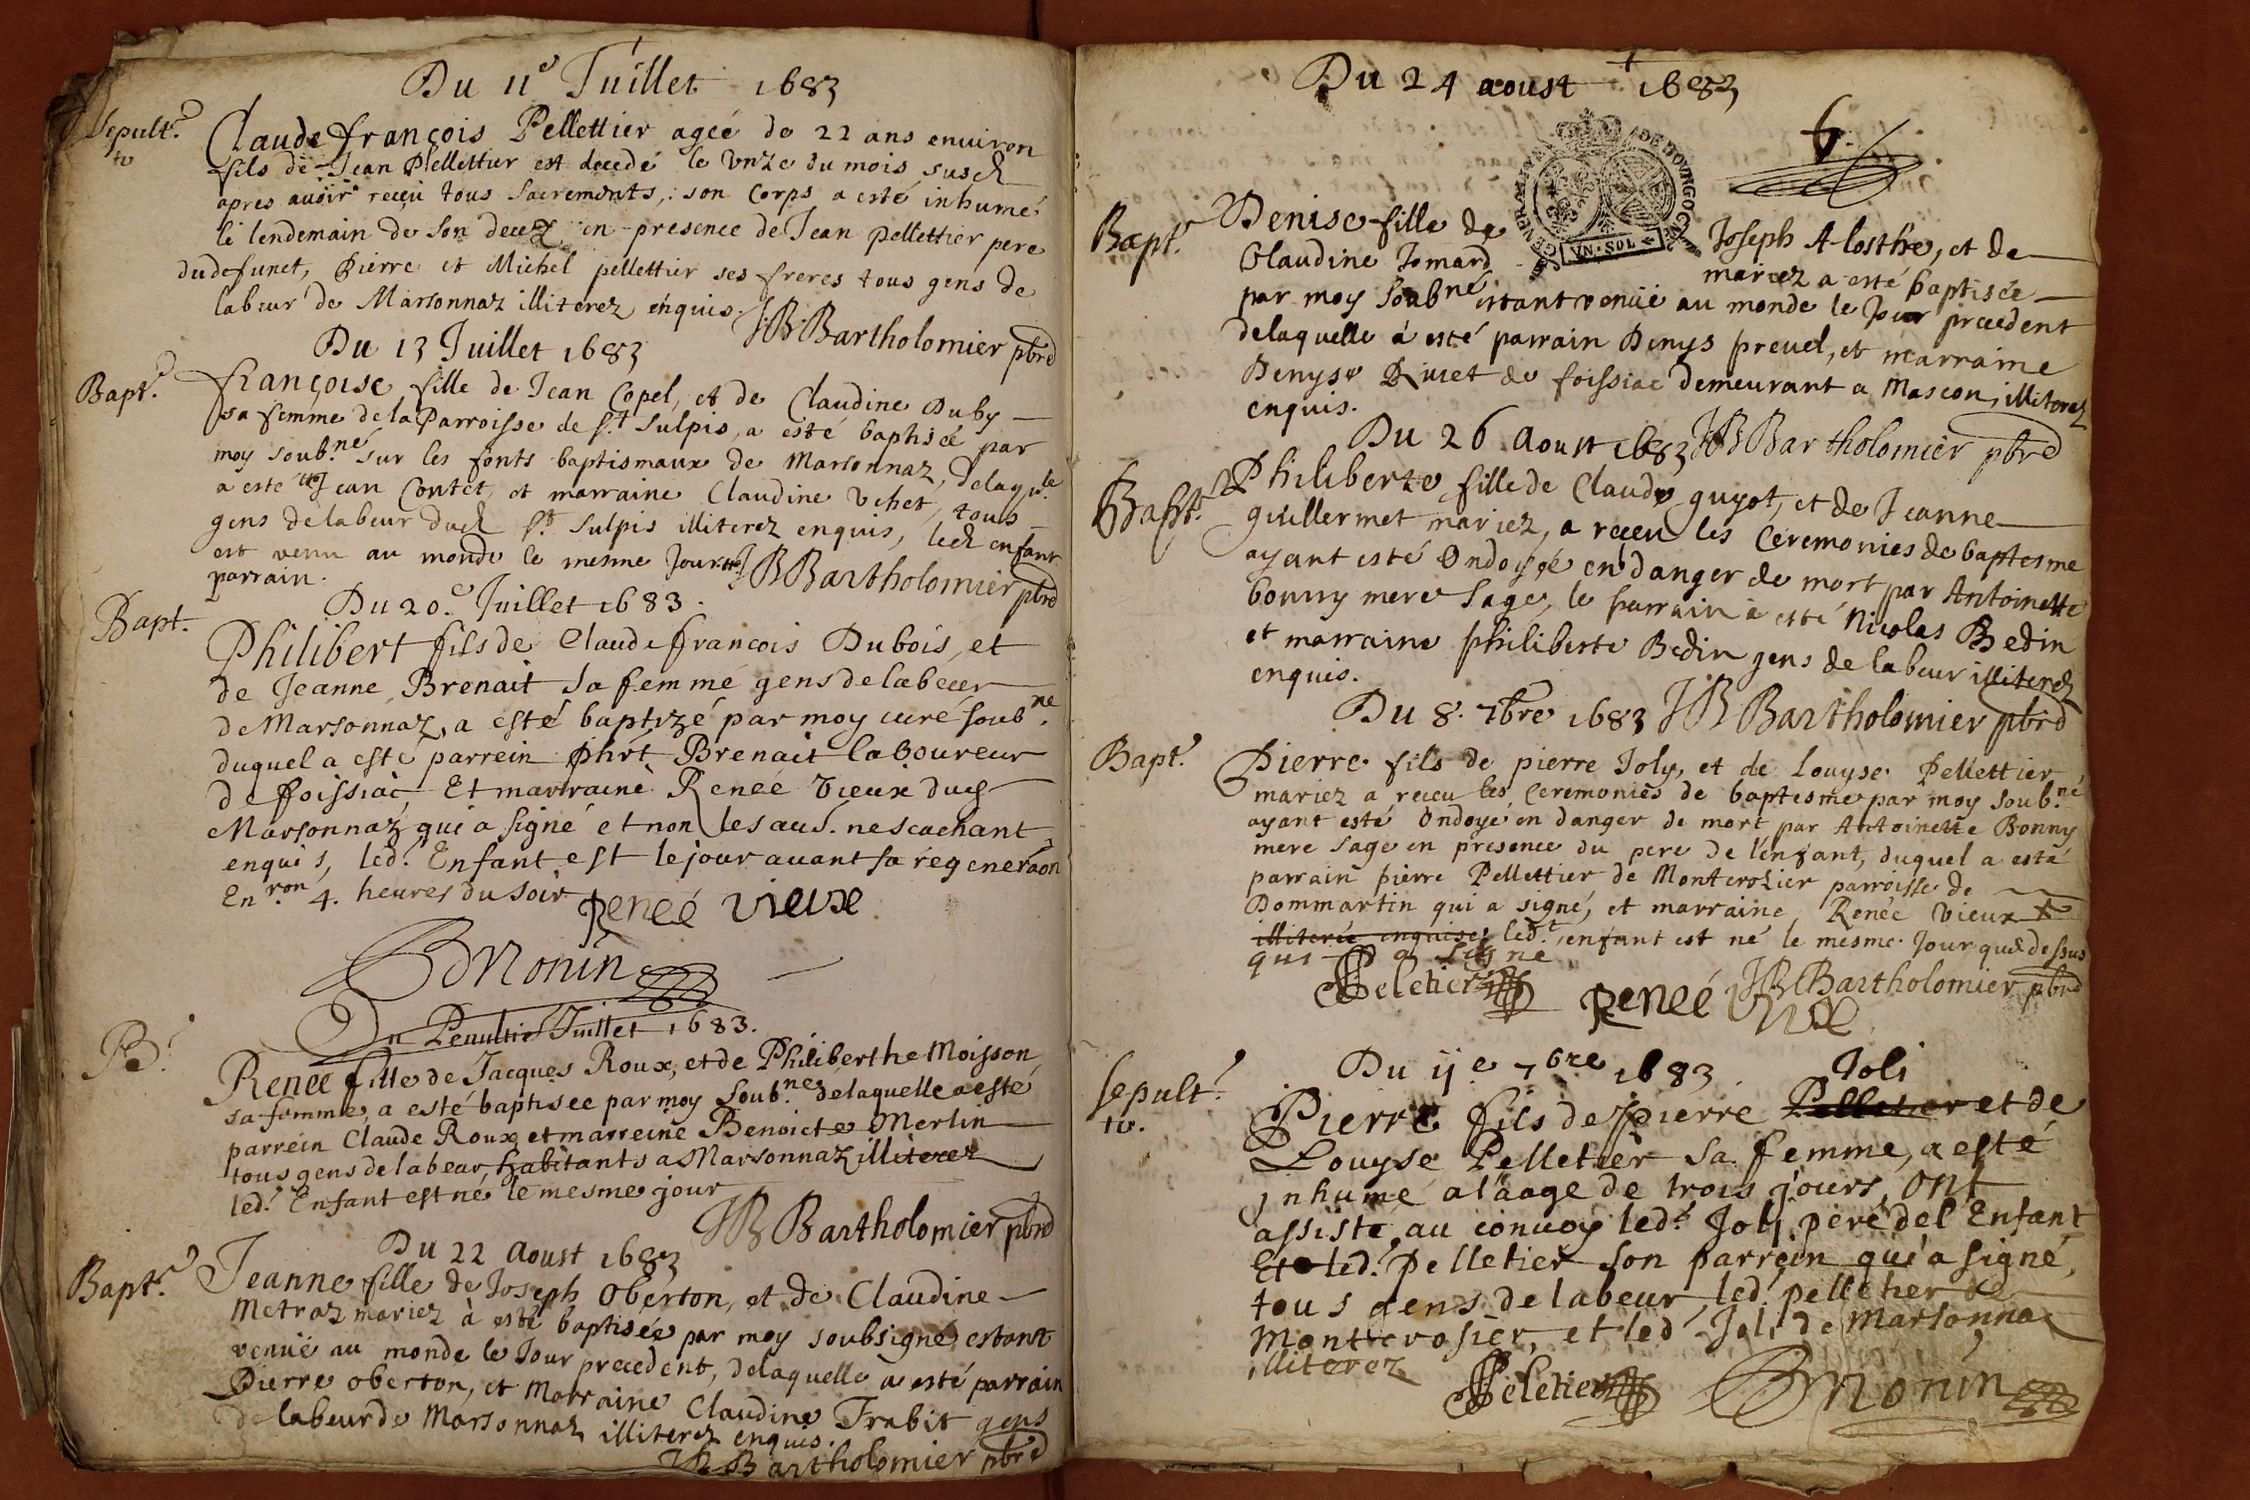 Du 11e Juillet 1683
Sepultre
Claude françois Pellettier ageé de 22 ans environ
fils de Jean Pellettier est decedé le vnze du mois susd
apres auoir receu tous sacrements, son corps a esté inhumé
le lendemain de son decez en presence de Jean pellettier pere
du defunct, Pierre et Michel pellettier ses freres tous gens de
labeur de Marsonnaz illiterez enquis.
JB Bartholomier pbrd
Du 13 Juillet 1683
Bapt.e
françoise fille de Jean Copel, et de Claudine Duby
sa femme de la Parroisse de st Sulpis, a esté baptiseé par
moy soub.né sur les fonts baptismaux de Marsonnaz, delaqu.le
a esté Jean Contet, et marraine Claudine Vchet, tous
gens de labeur dud st. Sulpis illiterez enquis, led enfant
est venu au monde le mesme Jour
JB Bartholomier pbrd
parrain.
Du 20.e Juillet 1683.
Bapt.
Philibert fils de Claude françois Dubois, et
de Jeanne Brenait sa femme gens de labeur
de Marsonnaz, a esté baptizé par moy curé soub.ne
duquel a esté parrein phrt Brenait laboureur
de foissiac, Et marraine Reneé Vieux dud
Marsonnaz qui a signé et non les aud. ne scachant
enquis, led.t Enfant est le jour auant sa regeneraon
En.ron 4. heures du soir
Reneé vieux
Monin
Du Penultie Juillet 1683.
B.e
Reneé fille de Jacques Roux, et de Philiberthe Moisson
sa femme, a esté baptisée par moy soub.nes delaquelle a esté
parrein Claude Roux et marreine Benoicte Merlin
tous gens de labeur habitants a Marsonnaz illiterez
led.t Enfant est né le mesme jour
JB Bartholomier pbrd
Du 22 Aoust 1683
Bapt.e
Jeanne fille de Joseph Oberton, et de Claudine
Metraz mariez à esté baptisée par moy soubsigné estant
venüe au monde le Jour precedent, delaquelle a esté parrain
Pierre oberton, et Marraine Claudine Trabit gens
de labeur de Marsonnaz illiterez enquis.
JB Bartholomier pbrd
Du 24 aoust 1683
6
GENERA DE BOVRGO
VN·SOL
Bapt.e
Denise fille de Joseph A losthe, et de
Claudine Jomard mariez a esté baptisée
par moy soubné estant venüe au monde le Jour precedent
delaquelle à esté parrain Denys preuel, et marraine
Denyse Riuet de foissiac demeurant a Mascon, illiterez
enquis.
JB Bartholomier pbrd
Du 26 Aoust 1683
Bapt.e
Philiberte fille de Claude guyot, et de Jeanne
guillermet mariez, a receu les Ceremonies de baptesme
ayant esté Ondoyé en danger de mort par Antoinette
bonny mere sage, le parrain a esté Nicolas Bedin
et marraine philiberte Bedin gens de labeur illiterez
enquis.
JB Bartholomier pbrd
Du 8. 7bre 1683
Bapt.e
Pierre fils de pierre Joly, et de Louyse Pellettier
mariez a receu les Ceremonies de baptesme par moy soub.né
ayant esté Ondoyé en danger de mort par Antoinette Bonny
mere sage en presence du pere de l'enfant, duquel a esté
parrain pierre Pellettier de Monterozier parroisse de
Dommartin qui a signé, et marraine Renée Vieux
illiterée enquise, led.t enfant est né le mesme Jour que dessus
qui a signé
JB Bartholomier pbrd
Peletier
Reneé vieux
Du 11e 7bre 1683
Sepult.re
Joli
Pierre fils de pierre Pelletier et de
Louyse Pelletier sa femme, a esté
Inhumé a l'aage de trois jours, Ont
assisté au conuoy led.t Joli pere del Enfant
Et led.t Pelletier son parrein qui a signé,
tous gens de labeur led.t pelletier de
Monterosier, et led.t Joli de Marsonnaz
illiterez
Peletier
Monin